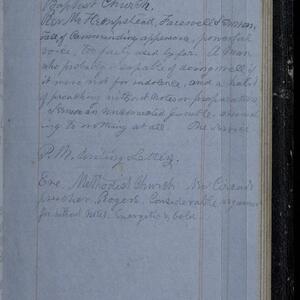 Baptist Church.
Rev. Mr Hempstead, Farewell Sermon,
Tall of Commanding appearance, powerful
voice, too freely used by far. A man
who probably is capable of doing well if
it were not for indolence, and a habit
of preaching without Notes or preparation
Sermon an unsuccessful jumble, amount
ing to nothing at all. One service
P.M. writing Letters.
Eve. Methodist Church
preacher, Rogers. Considerable argument
for without notes. Energetic & bold.